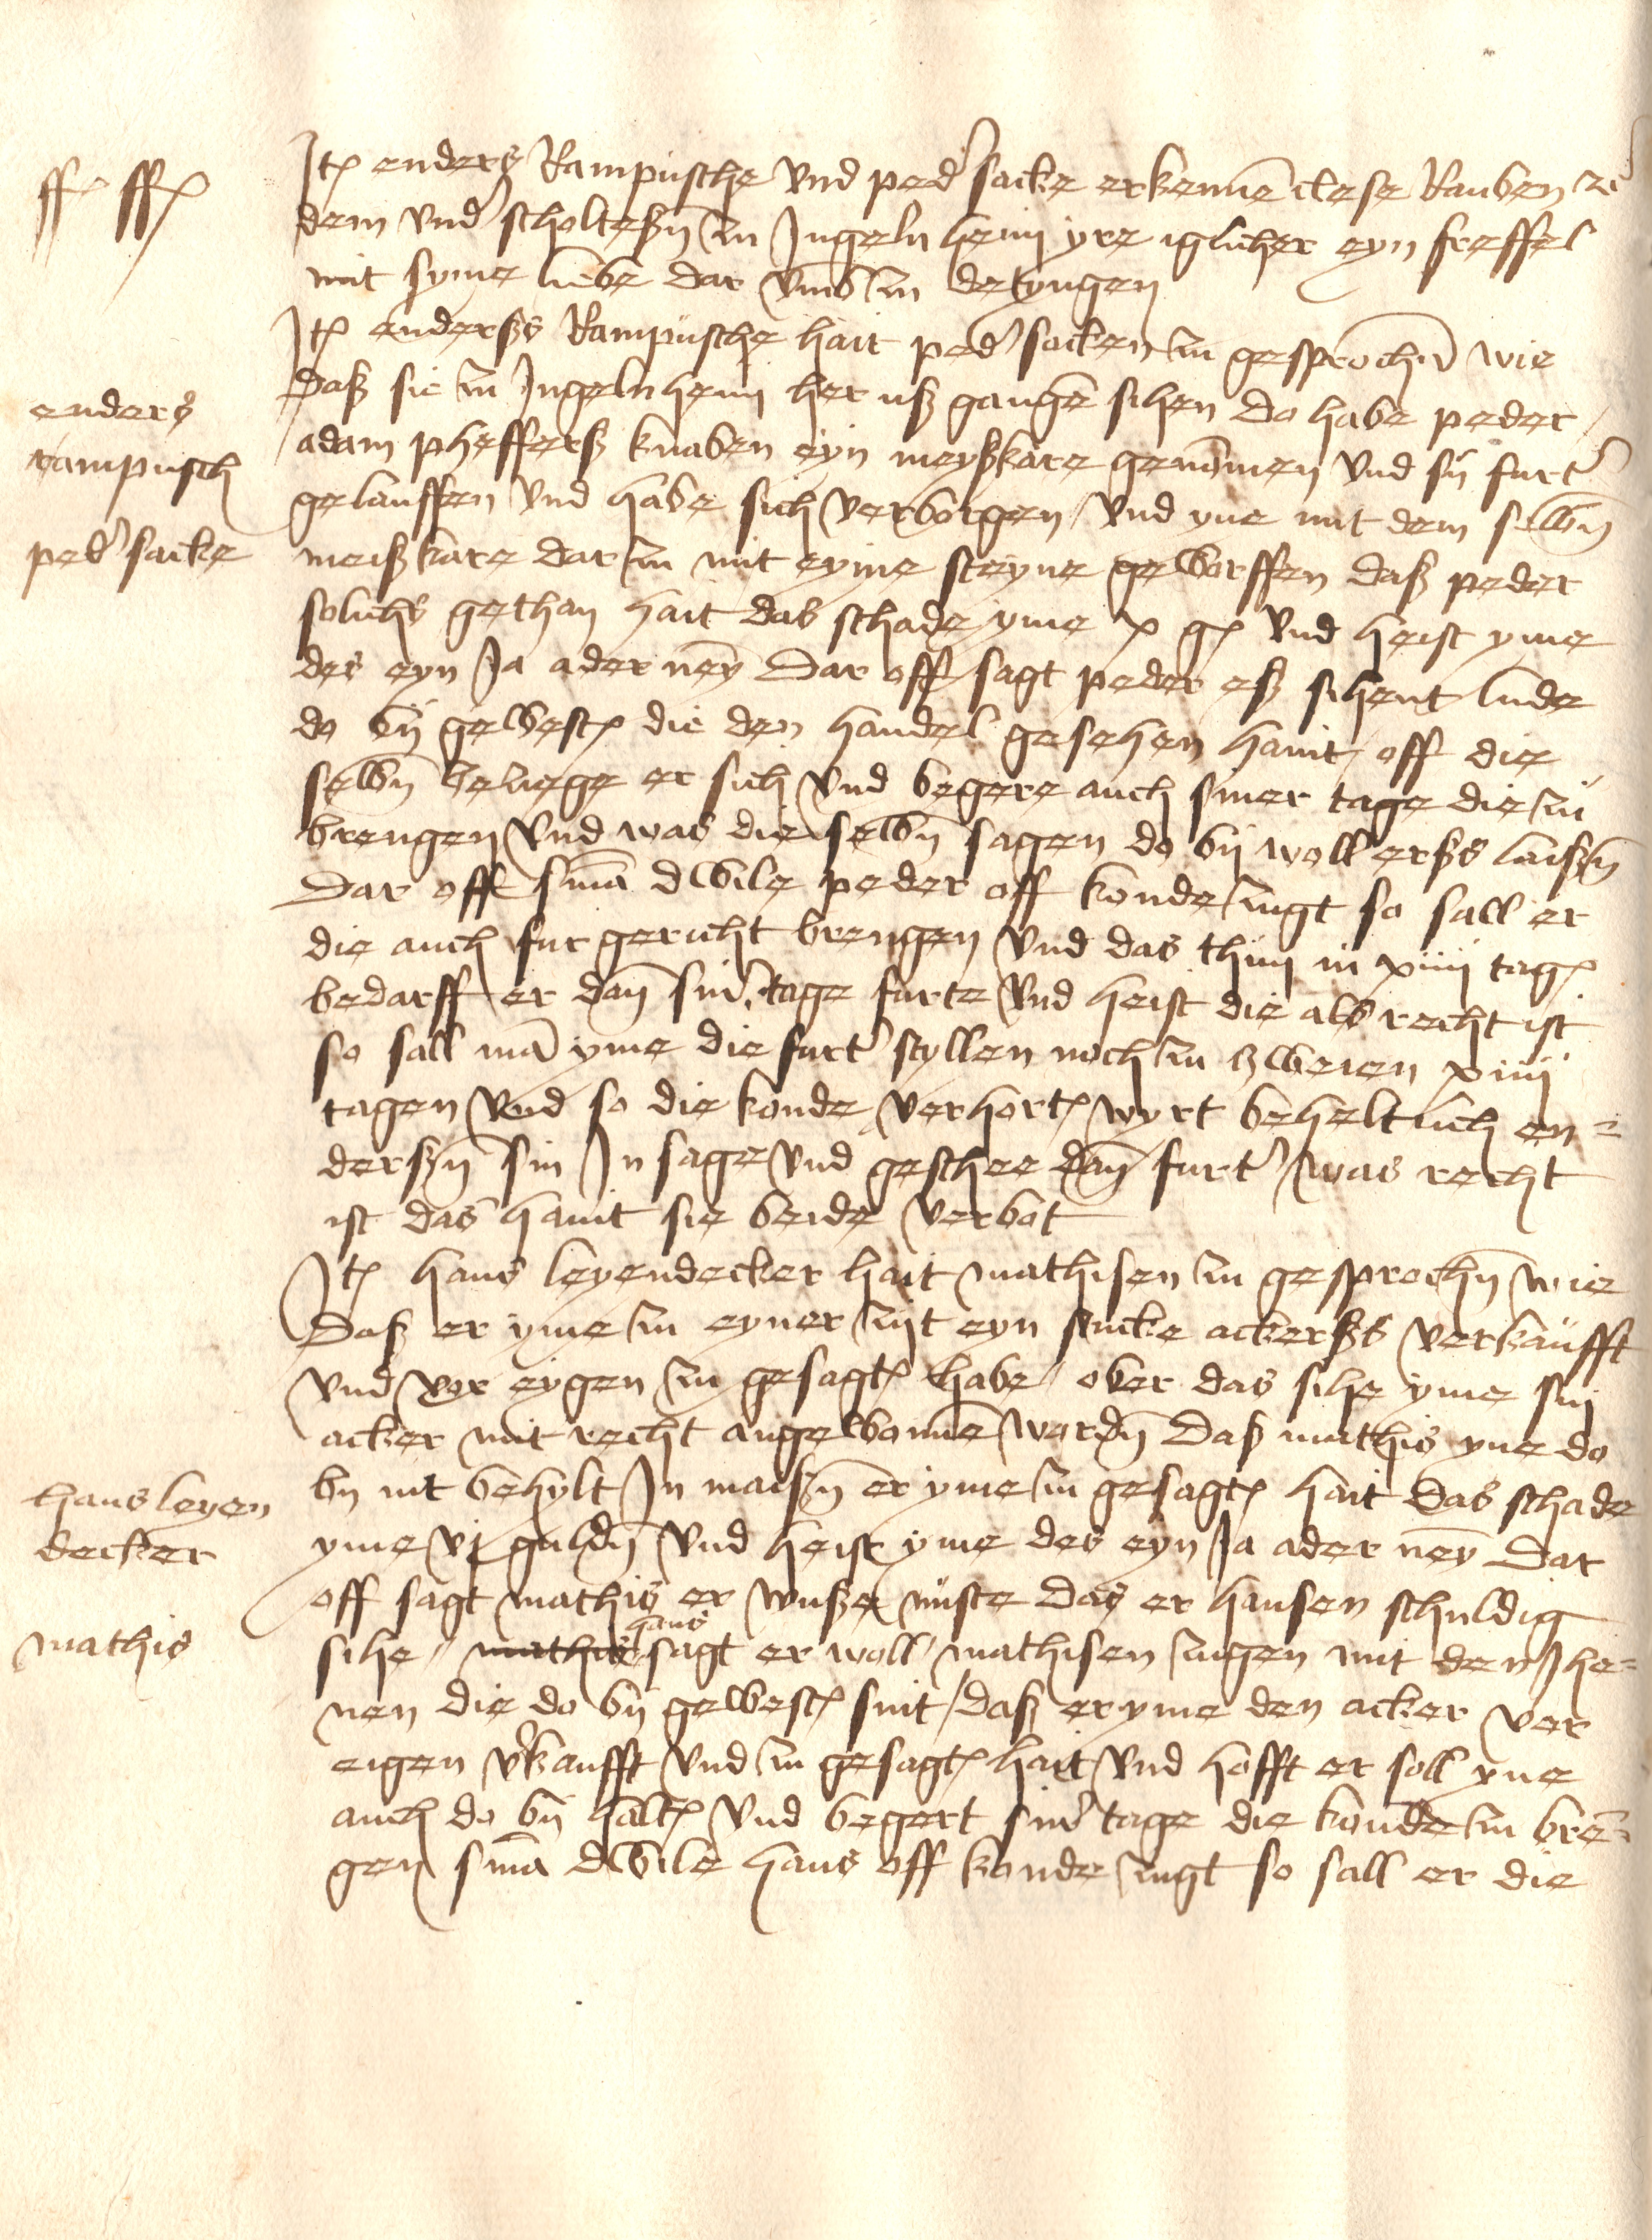 ff ff
Jt enders Rampusche vnd ped sacke erkenne clese Rauben zu
dem vnd scholteßn zu Jngelnheim yre iglicher eyn freffel
mit syme liebe dar vmb zu detyngen
Jt enderßs Rampusche hait ped sacken zu gesprochn wie
enders
rampusch
ped sacke
daß sie zu Jngelnheim her uß gange sihen do habe peder
adam pheffers knaben eyn meyßkare genomen vnd sy furt
gelauffen vnd habe sich verborgen vnd yne mit dem selbn
meißkare dar zu mit eyme steyne geworffen daß peder
solichs gethan hait das schade yme x g vnd heist yme
des eyn Ja ader ney Dar off sagt peder eß sihent lude
do by gewest die den handel gesehen haint off die
selbn beziege er sich vnd begere auch siner tage die zu
brengen vnd was die selbn sagen do by woll erßs laißn
Dar off sma dwile peder off konde zugt so sall er
die auch fur gericht brengen vnd das thun in xiiij tag
bedarff er dan sin tage furte vnd heist die als recht ist
so sall ma yme die furt styllen noch zu zweien xiiij
tagen vnd so die konde verhort wyrt beheltlich en=
derßn sin Jn sage vnd geschee dan furt was recht
ist das haint sie beide verbot
Jt hans leyendecker hait mathisen zu gesprochn wie
Daß er yme zu eyner zyt eyn stucke ackerßs verkaufft
vnd vor eygen zu gesagt habe ober das sihe yme sin
acker mit recht angewonne wordn Daß mathis yne do
hans leyen
decker
mathis
by nit behylt Jn maißn er yme zu gesagt hait das schade
yme vj guldn vnd heist yme des eyn Ja ader ney Dar
off sagt mathis er wuße nuste das er hansen schuldig
sihe mathis hans sagt er woll mathisen zugen mit den Jhe=
nen die do by gewest sint daß er yme den acker vor
eigen vkaufft vnd zu gesagt hait vnd hofft er soll yne
auch do by halt vnd begert sin tage die konde zu bre=
gen sma dwile hans off konde zugt so sall er die